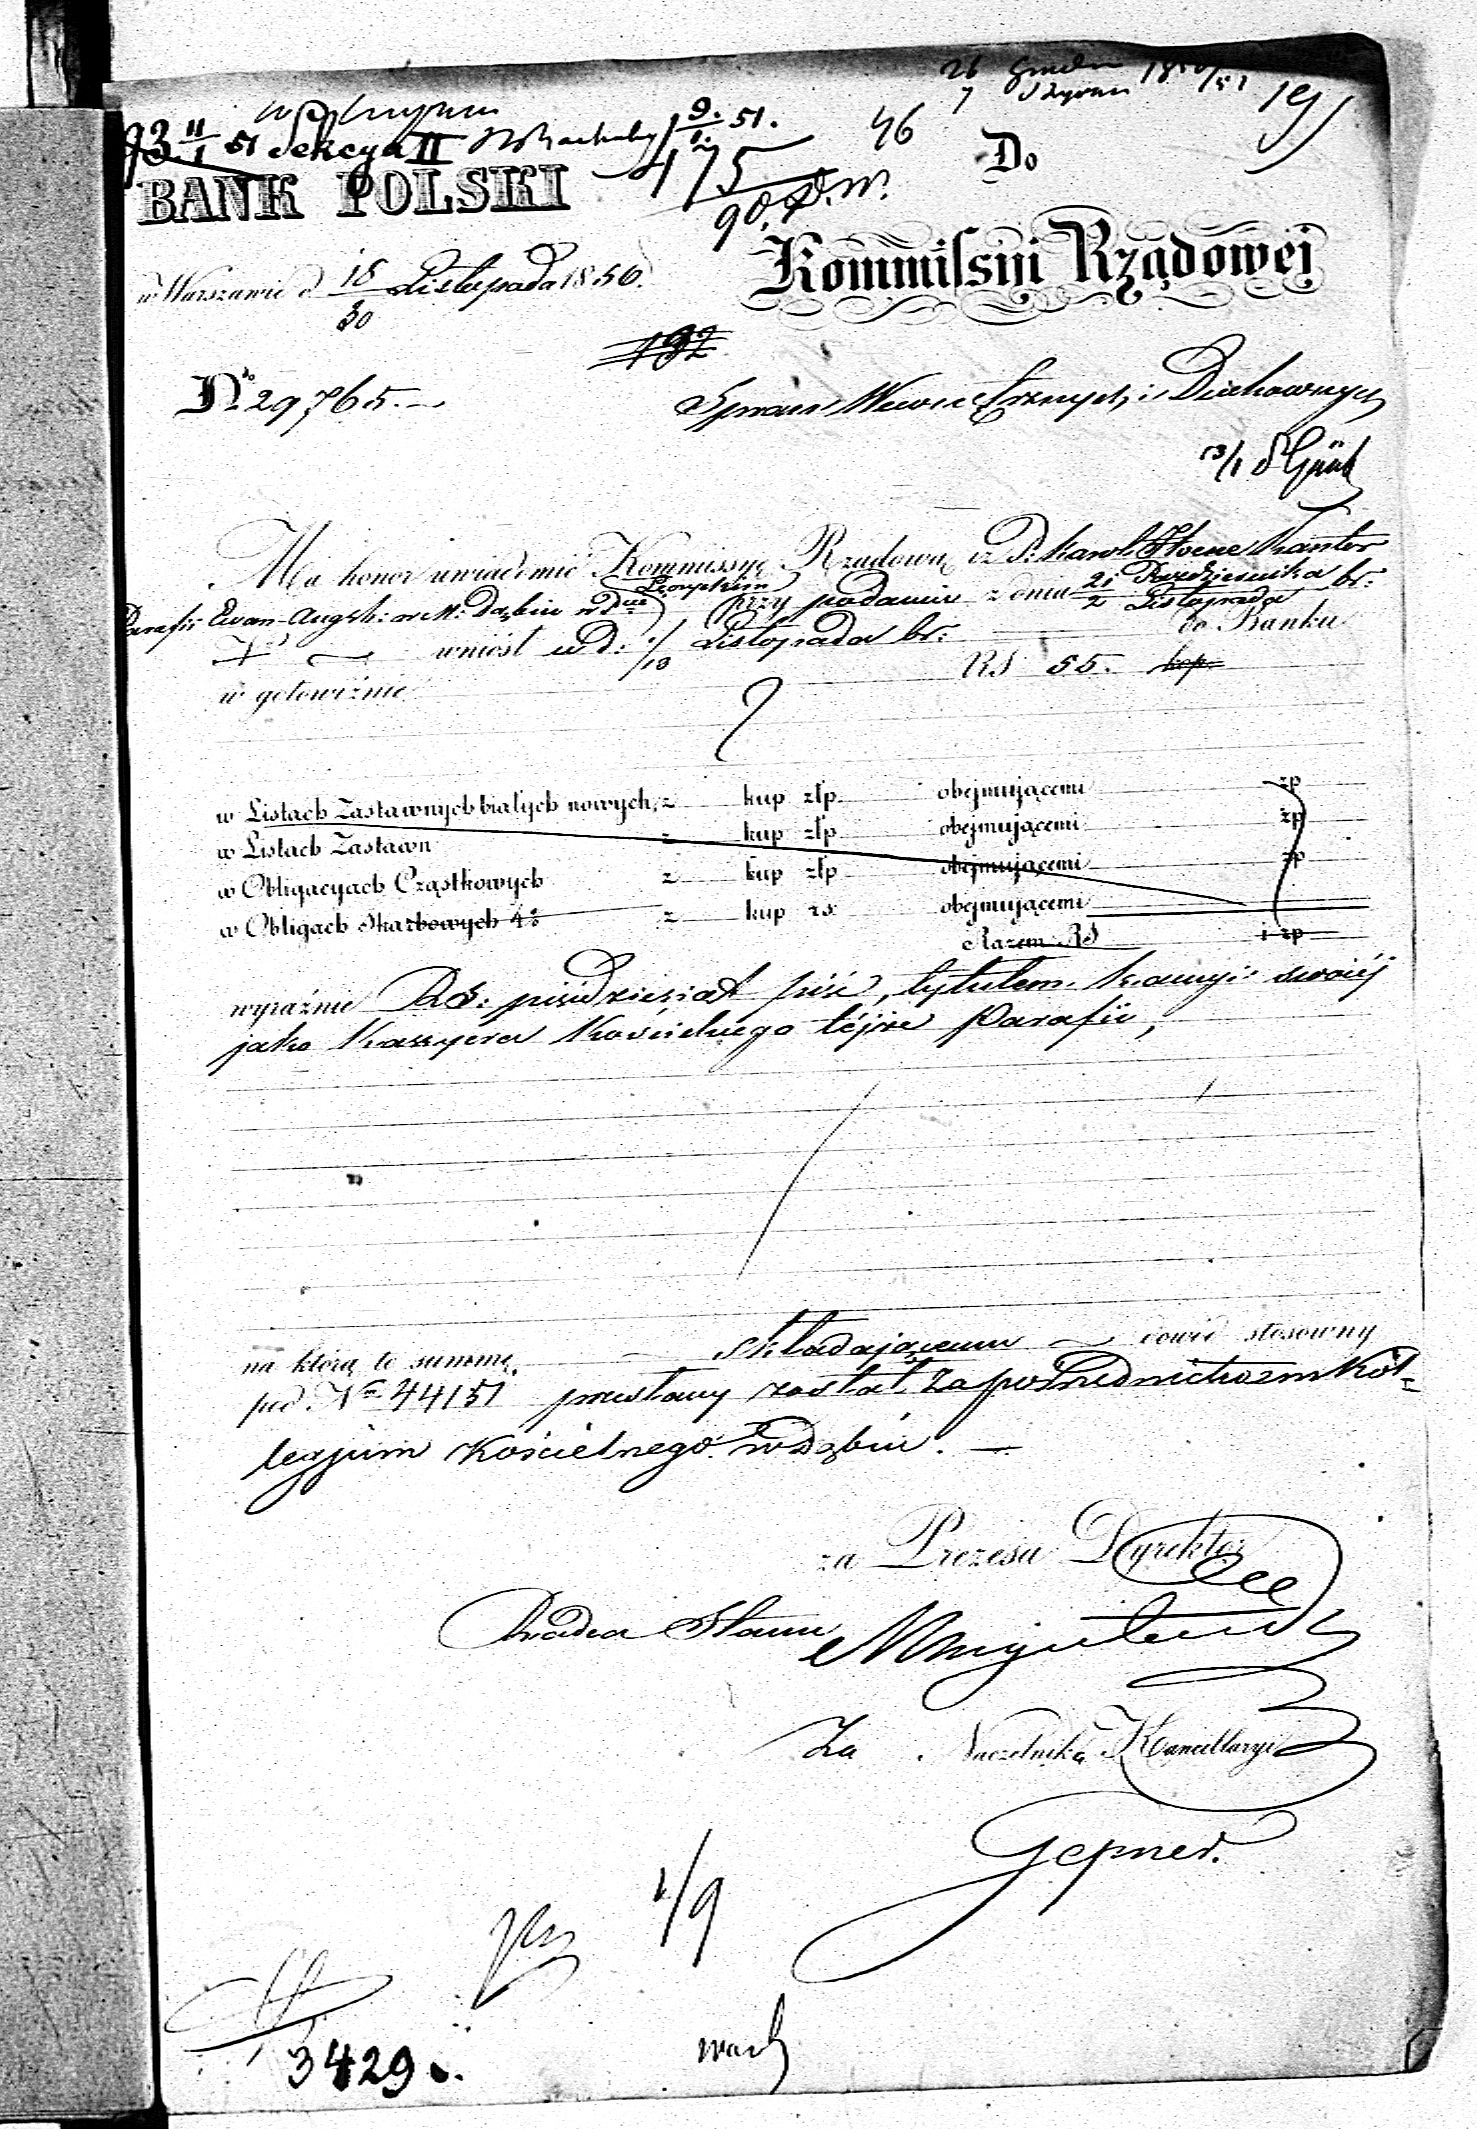 26 Grudnia 1850/51
7 Stycznia
191
93 11/1 51 Sekcya II
9/1. 51.
46
475
90.
Do
BANK POLSKI
Kommissyi Rządowej
w Warszawie d 18/30 Listopada 1850.
192
No 29765.
Spraw Wewnętrznych i Duchownych
Ma honor uwiadomić Kommissyę Rządową iż P. Karol Kantor
Parafii Ewan. Augsb: w M: Dąbiu w Pcie Łęczyckim przy podaniu z dnia 21 Października/2 Listopada br.
wniósł w d: /10 Listopada br: do Banku
w gotowiźnie RS 55. kop.
w Listach Zastawnych białych nowych, z kup złp. obejmującemi zp
w Listach Zastawn z kup złp obejmującemi zp
w Obligacyach Cząstkowych z kup złp obejmującemi zp
w Obligach Skarbowych 4% z kup rs. obejmującemi
Razem RS i zp
wyraźnie RS: pięćdziesiąt pięć, tytułem kaucyi swoiéj
jako Kassyera Kościelnego téjże Parafii,
na którą to summę składającemu dowód stosowny
pod No 44151 przesłany został za pośrednictwem Kol-
legjum Kościelnego w Dąbiu.
za Prezesa Dyrektor
Radca Stanu
Za Naczelnika Kancellaryi
Gepner.
1/9
3429.